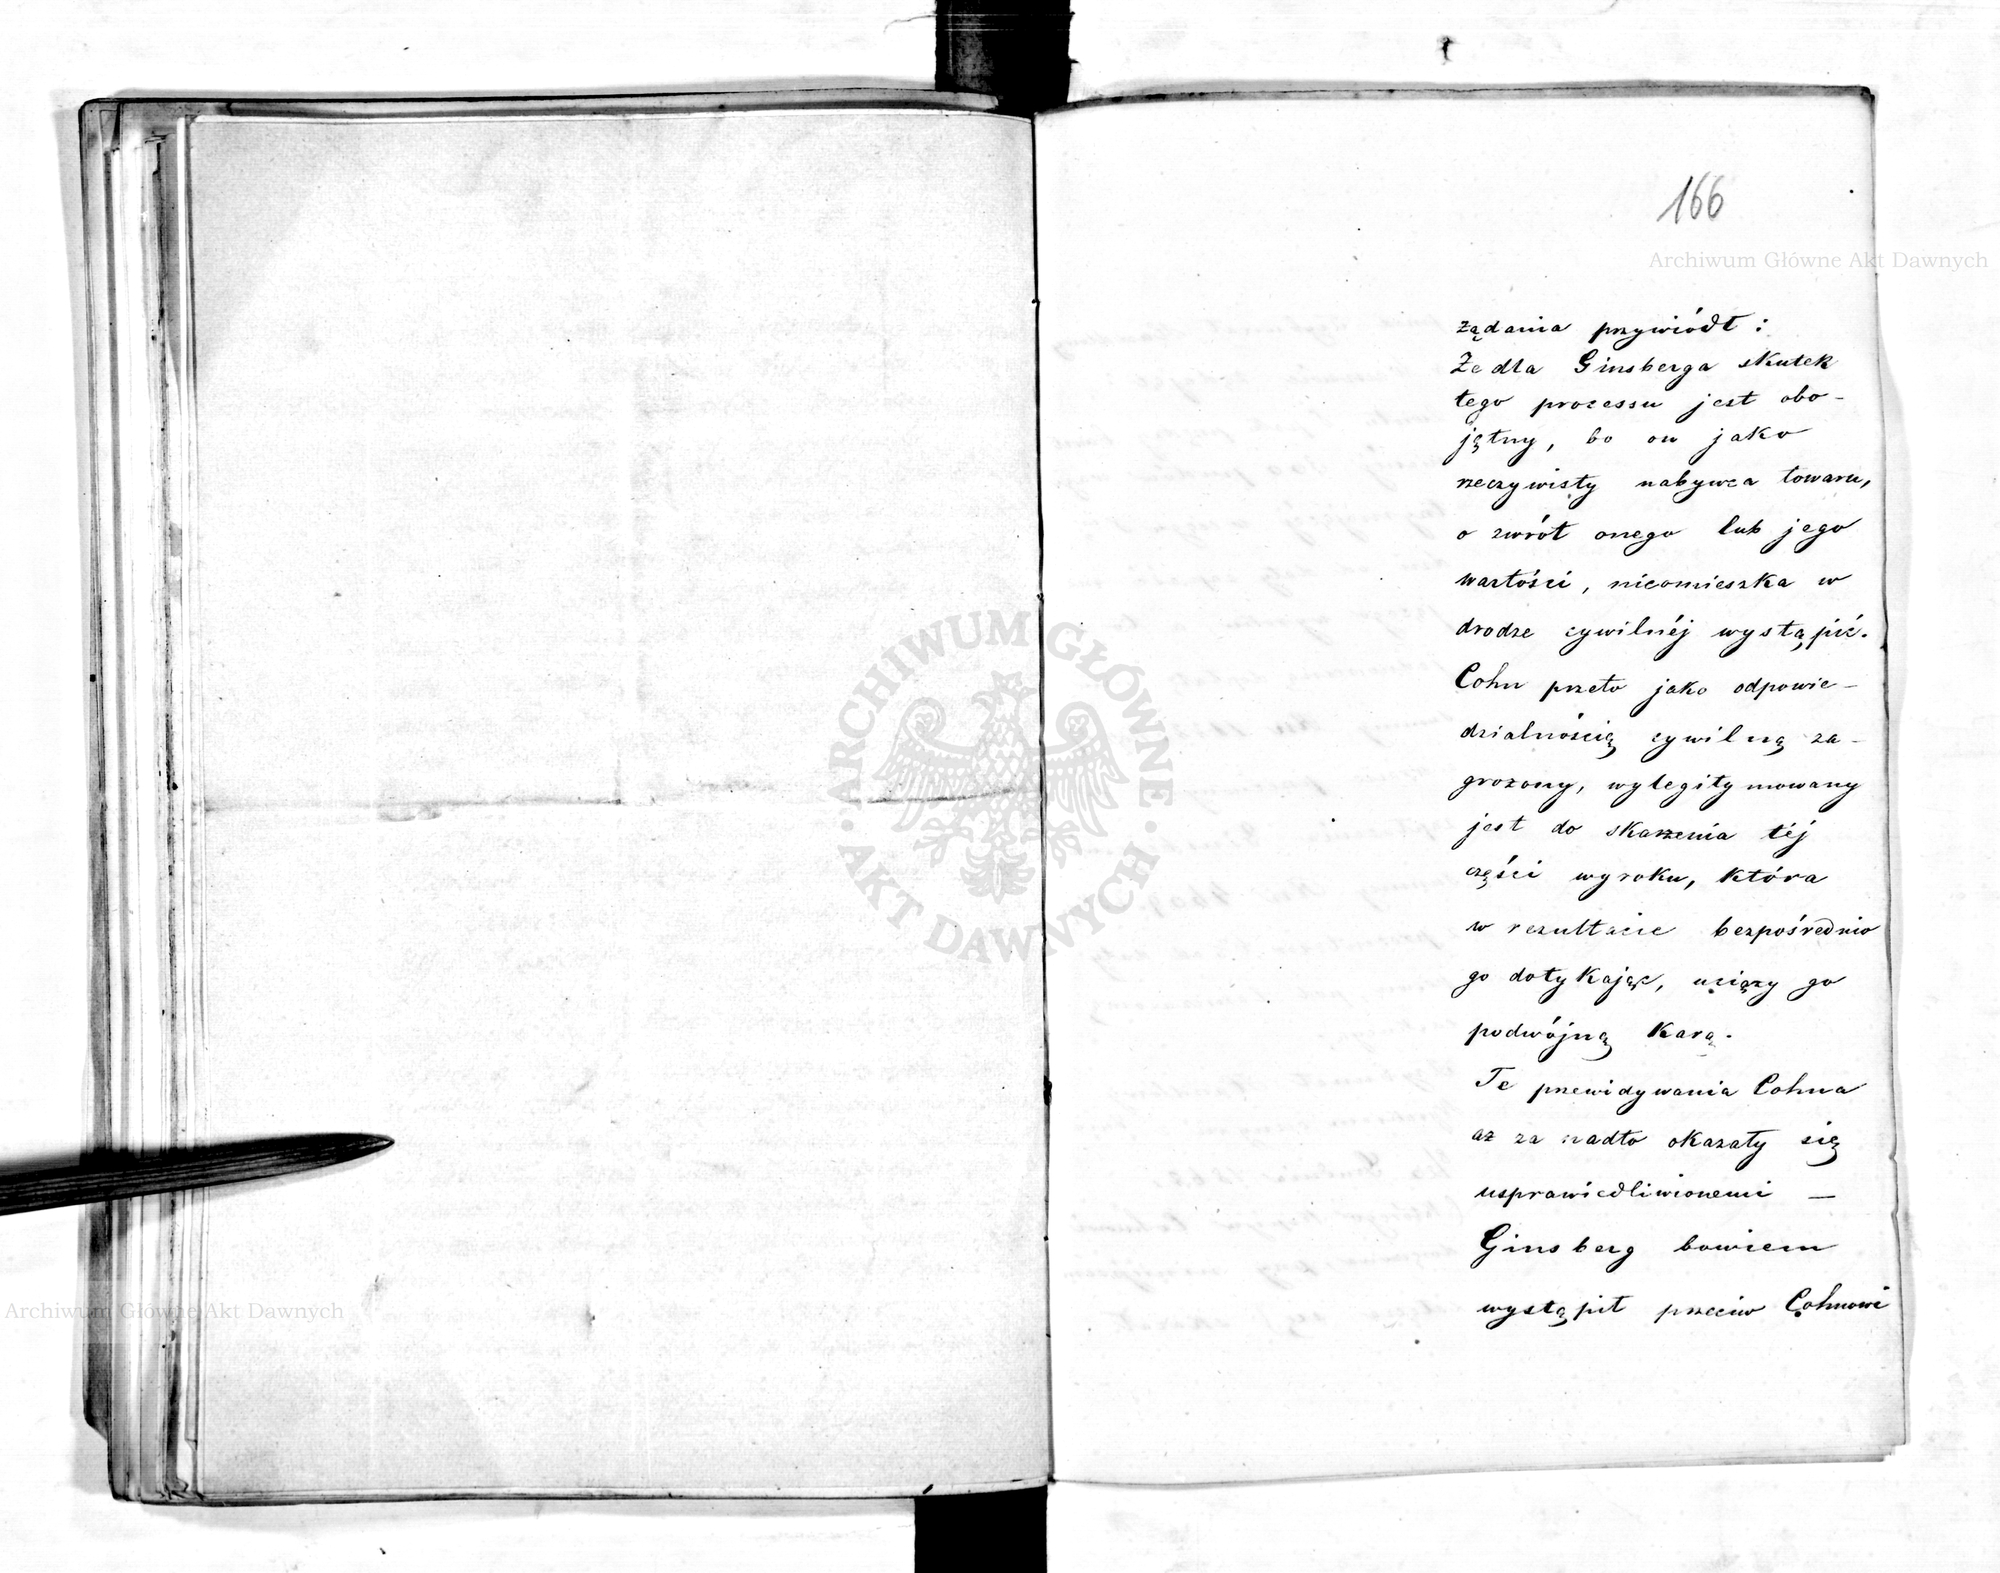 166
Archiwum Główne Akt Dawnych
żądania przywiódł :
Że dla Ginsberga skutek
tego processu jest obo-
jętny, bo on jako
rzeczywisty nabywca towaru,
o zwrót onego lub jego
wartości, nieomieszka w
drodze cywilnéj wystąpić.
Cohn przeto jako odpowie-
dzialnością cywilną za-
grożony, wylegitymowany
jest do skarżenia téj
części wyroku, która
w rezultacie bezpośrednio
go dotykając, uciąży go
podwójną karą.
Te przewidywania Cohna
aż za nadto okazały się
usprawiedliwionemi —
Ginsberg bowiem
wystąpił przeciw Cohnowi
ARCHIWUM GŁÓWNE
· AKT DAWNYCH ·
Archiwum Główne Akt Dawnych